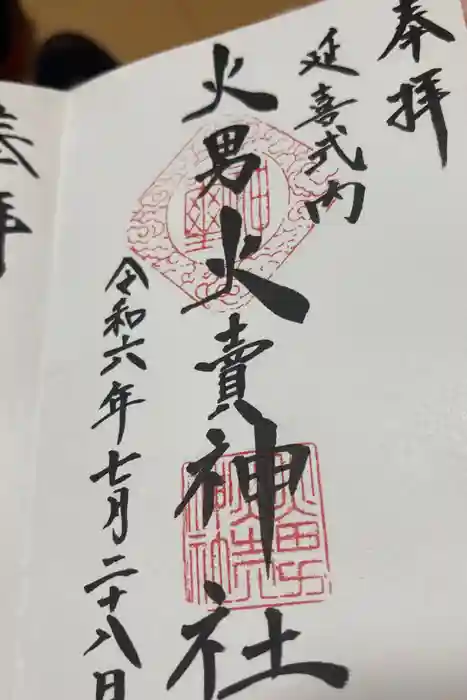 奉拝
延喜式内
火男火賣神社
令和六年七月二十八日